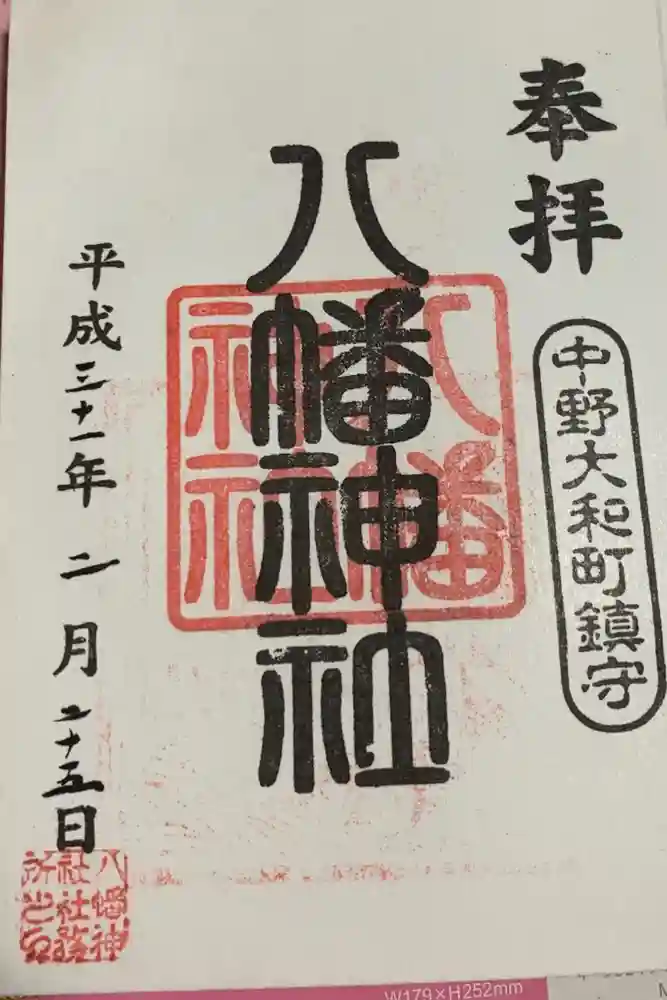 奉拝
中野大和町鎮守
八幡神社
八幡神社
平成三十一年二月二十五日
八幡神
社社務
所之印
W179×H252mm